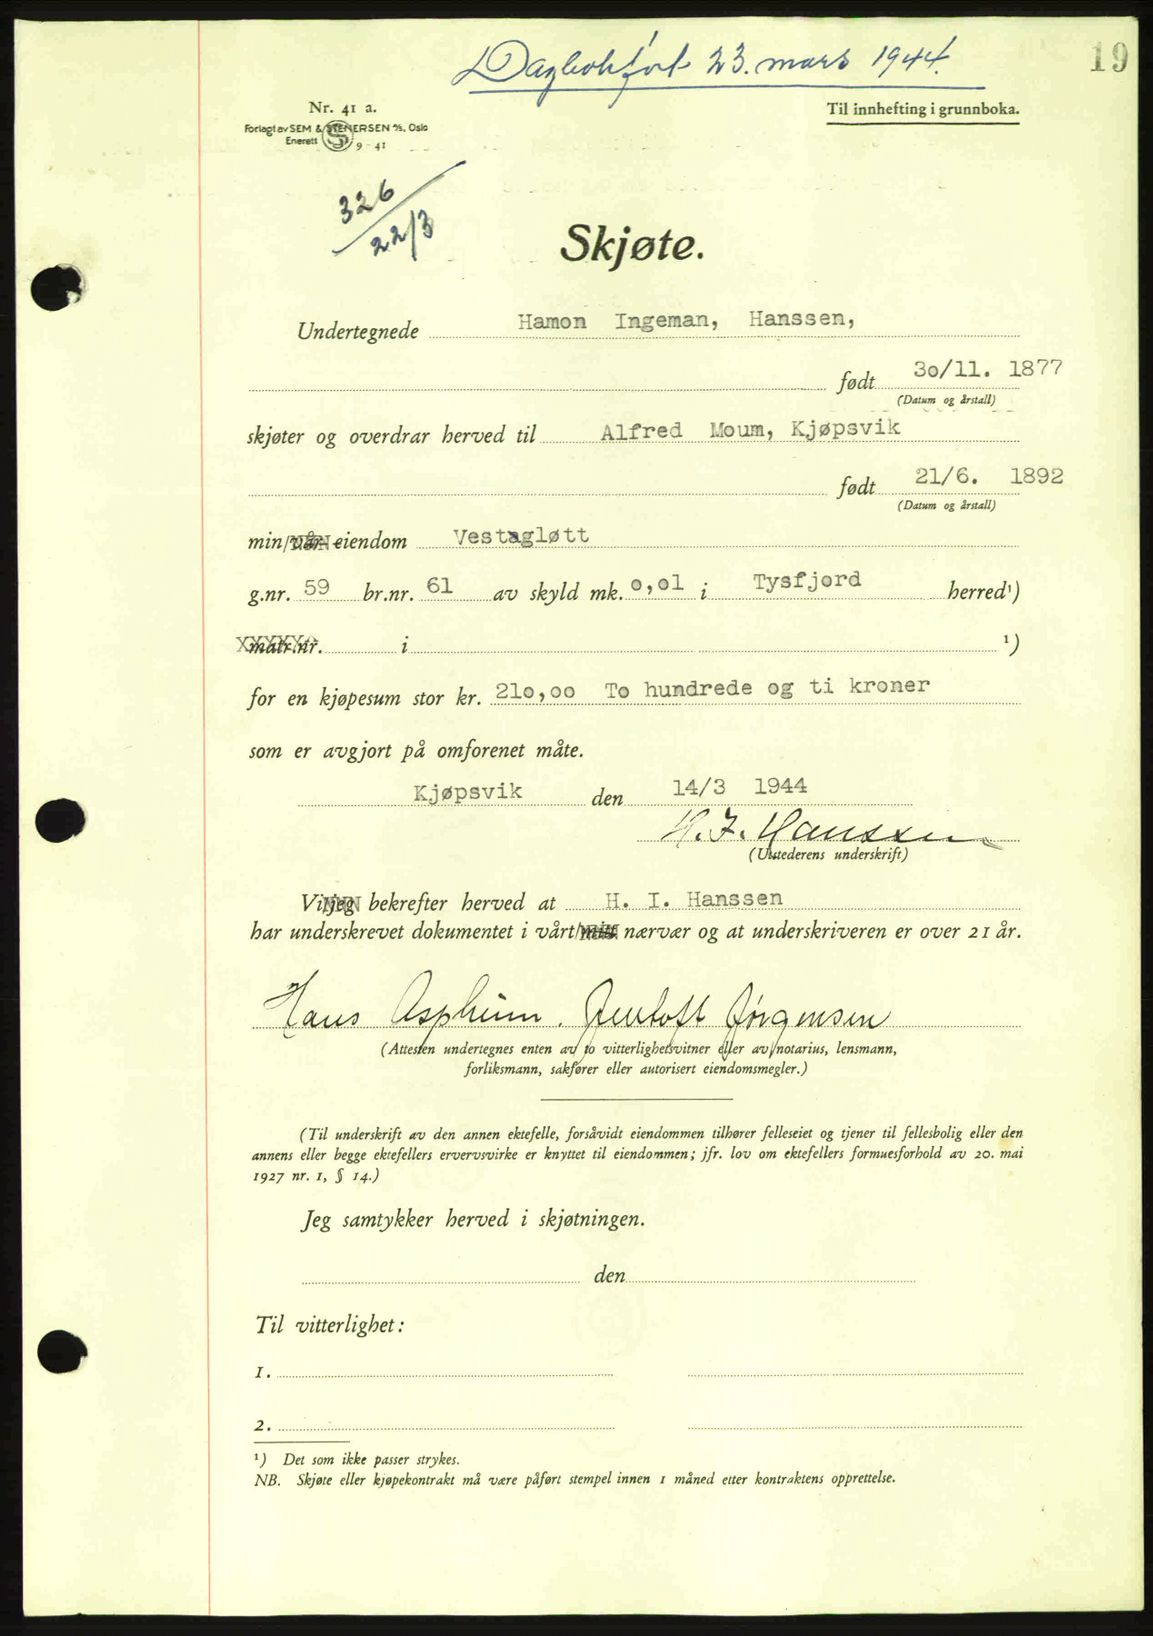 Dagbokført 23. mars 1944.
19
Nr. 41 a.
Forlagt av SEM & STENERSEN A/S, Oslo
Enerett 9 - 41
Til innhefting i grunnboka.
326
22/3
Skjøte.
Undertegnede Hamon Ingeman, Hanssen,
født 30/11. 1877
(Datum og årstall)
skjøter og overdrar herved til Alfred Moum, Kjøpsvik
født 21/6. 1892
(Datum og årstall)
min/vår eiendom Vestagløtt
g.nr. 59 br.nr. 61 av skyld mk. 0,01 i Tysfjord herred¹)
matr.nr. i ¹)
for en kjøpesum stor kr. 210,00 To hundrede og ti kroner
som er avgjort på omforenet måte.
Kjøpsvik den 14/3 1944
H. I. Hanssen
(Utstederens underskrift)
Vi/jeg bekrefter herved at H. I. Hanssen
har underskrevet dokumentet i vårt/mitt nærvær og at underskriveren er over 21 år.
Hans Aspheim. Jentoft Jørgensen
(Attesten undertegnes enten av to vitterlighetsvitner eller av notarius, lensmann,
forliksmann, sakfører eller autorisert eiendomsmegler.)
(Til underskrift av den annen ektefelle, forsåvidt eiendommen tilhører felleseiet og tjener til fellesbolig eller den
annens eller begge ektefellers ervervsvirke er knyttet til eiendommen; jfr. lov om ektefellers formuesforhold av 20. mai
1927 nr. 1, § 14.)
Jeg samtykker herved i skjøtningen.
den
Til vitterlighet:
1.
2.
¹) Det som ikke passer strykes.
NB. Skjøte eller kjøpekontrakt må være påført stempel innen 1 måned etter kontraktens opprettelse.